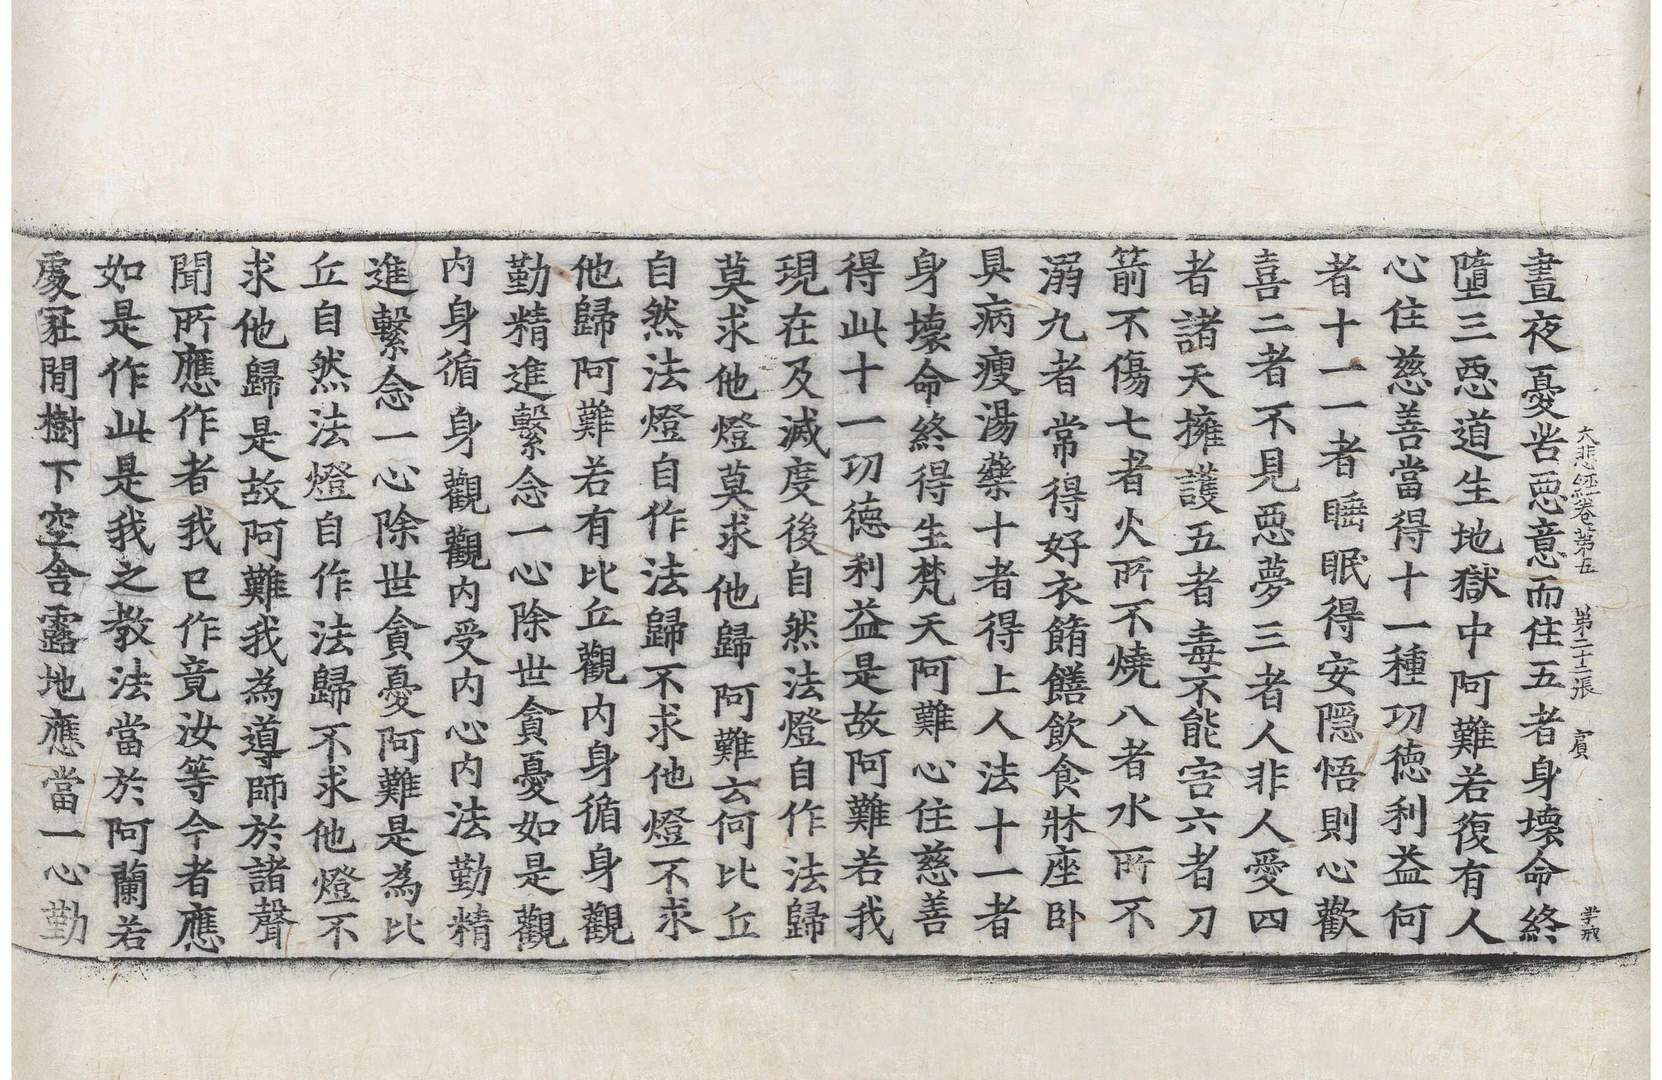 大悲經卷第五 第二十二張 賓
晝夜憂苦惡意而住五者身壞命終
墮三惡道生地獄中阿難若復有人
心住慈善當得十一種功德利益何
者十一一者睡眠得安隱悟則心歡
喜二者不見惡夢三者人非人愛四
者諸天擁護五者毒不能害六者刀
箭不傷七者火所不燒八者水所不
溺九者常得好衣餚饍飲食牀座卧
具病瘦湯藥十者得上人法十一者
身壞命終得生梵天阿難心住慈善
得此十一功德利益是故阿難若我
現在及滅度後自然法燈自作法歸
莫求他燈莫求他歸阿難云何比丘
自然法燈自作法歸不求他燈不求
他歸阿難若有比丘觀內身循身觀
勤精進繫念一心除世貪憂如是觀
內身循身觀觀內受內心內法勤精
進繫念一心除世貪憂阿難是為比
丘自然法燈自作法歸不求他燈不
求他歸是故阿難我為導師於諸聲
聞所應作者我已作竟汝等今者應
如是作此是我之教法當於阿蘭若
處冢間樹下空舍露地應當一心勤